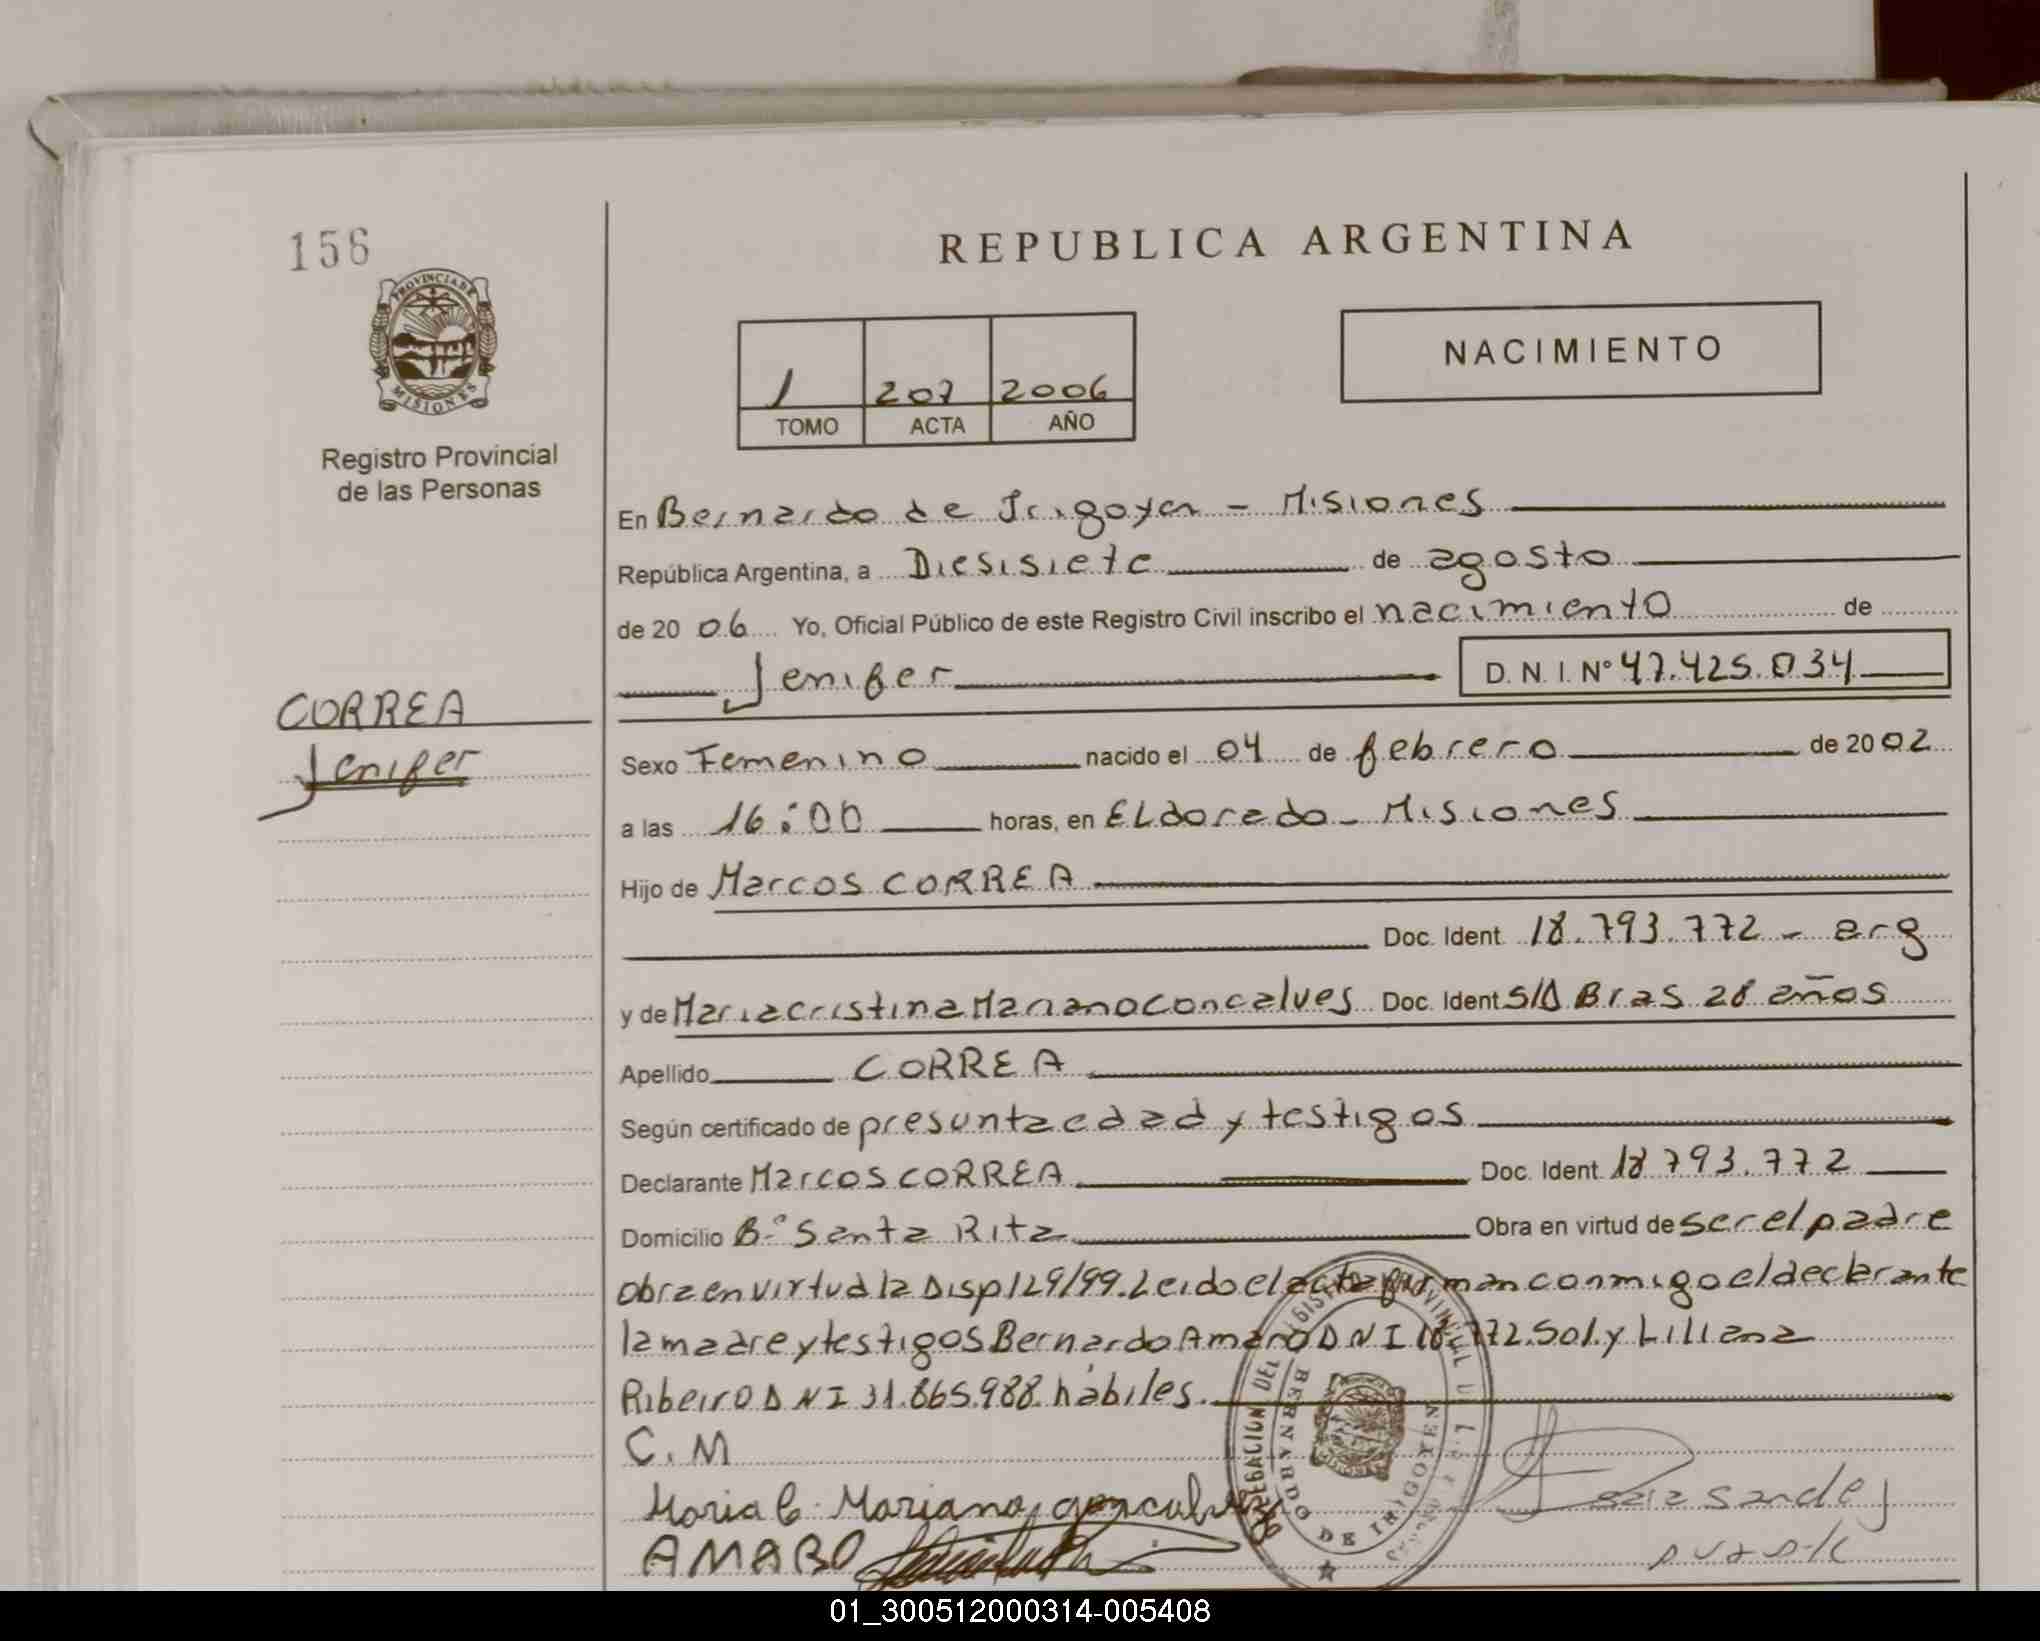 156
PROVINCIA DE
MISIONES
Registro Provincial
de las Personas
REPUBLICA ARGENTINA
1 207 2006
TOMO ACTA AÑO
NACIMIENTO
En Bernardo de Irigoyen - Misiones
República Argentina, a Diesisiete de agosto
de 20 06 Yo, Oficial Público de este Registro Civil inscribo el nacimiento de
Jenifer D.N.I. Nº 47.425.034
CORREA
Jenifer
Sexo Femenino nacido el 04 de febrero de 20 02
a las 16:00 horas, en ELdorado - Misiones
Hijo de Marcos CORREA
Doc. Ident. 18.793.772 - arg
y de Maria cristina Mariano concalves Doc. Ident S/D Bras 28 años
Apellido CORREA
Según certificado de presunta edad y testigos
Declarante Marcos CORREA Doc. Ident. 18 793.772
Domicilio Bº Santa Rita Obra en virtud de ser el padre
obra en virtud la Disp 129/99. Leido el acta firman conmigo el declarante
la madre y testigos Bernardo Amaro DNI 18.772.501. y Liliana
Ribeiro DNI 31.865.988. hábiles.
C. M
Maria C. Mariano goncalves
AMARO
DELEGACION DEL REGISTRO PROVINCIAL DE LAS PERSONAS
BERNARDO DE IRIGOYEN
01_300512000314-005408